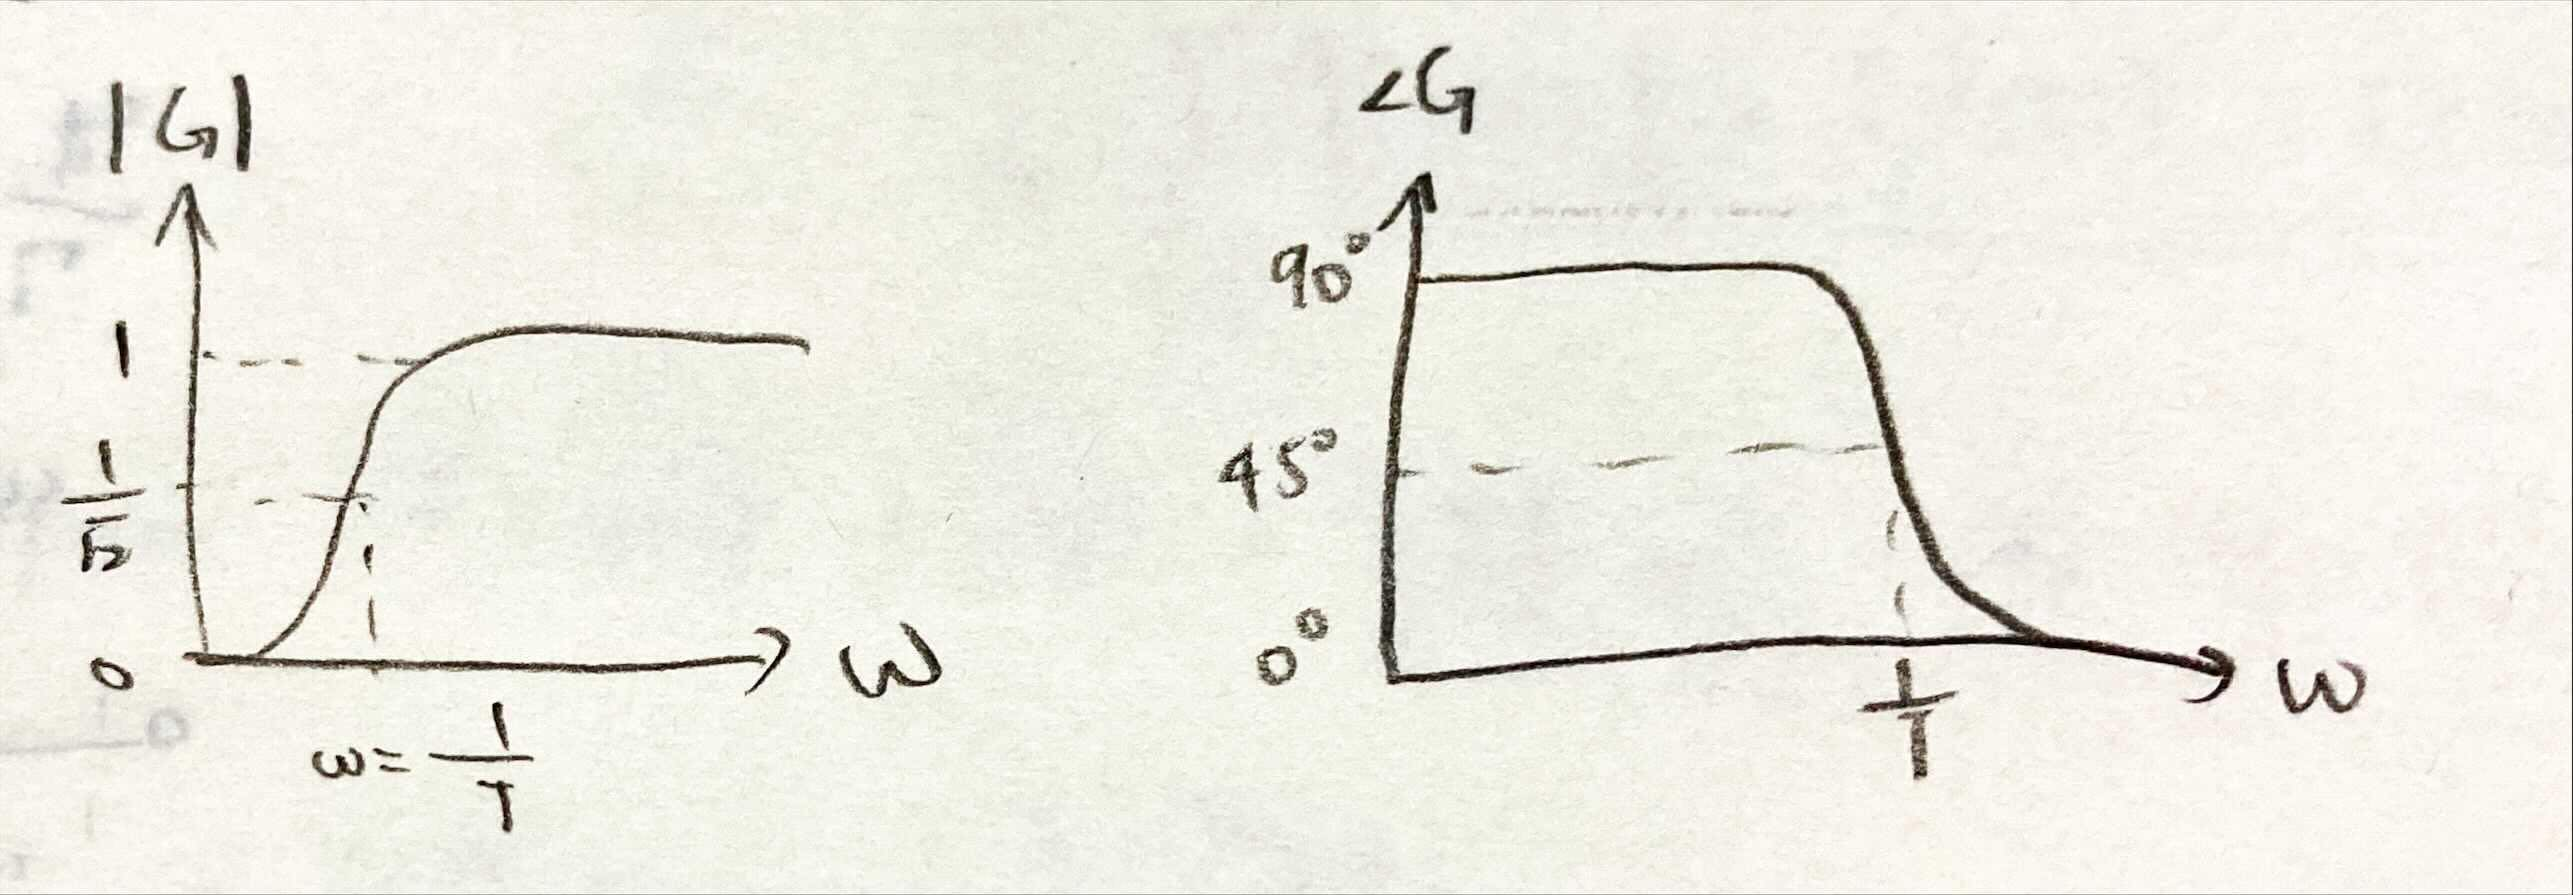 |G|
1
1/√2
0
ω
ω= 1/T
∠G
90°
45°
0°
1/T
ω